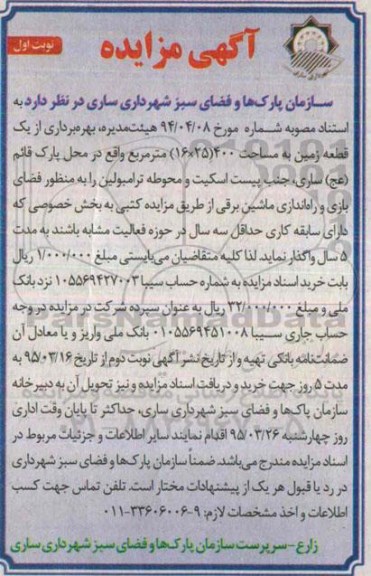 آگهی مزایده
نوبت اول
سازمان پارک‌ها و فضای سبز شهرداری ساری در نظر دارد به
استناد مصوبه شماره مورخ ۹۴/۰۴/۰۸ هیئت‌مدیره، بهره‌برداری از یک
قطعه زمین به مساحت ۴۰۰(۲۵×۱۶) مترمربع واقع در محل پارک قائم
(عج) ساری، جنب پیست اسکیت و محوطه ترامبولین را به منظور فضای
بازی و راه‌اندازی ماشین برقی از طریق مزایده کتبی به بخش خصوصی که
دارای سابقه کاری حداقل سه سال در حوزه فعالیت مشابه باشند به مدت
۵ سال واگذار نماید. لذا کلیه متقاضیان می‌بایستی مبلغ ۱/۰۰۰/۰۰۰ ریال
بابت خرید اسناد مزایده به شماره حساب سیبا ۰۱۰۵۵۶۹۴۲۷۰۰۳ نزد بانک
ملی و مبلغ ۳۲/۰۰۰/۰۰۰ ریال به عنوان سپرده شرکت در مزایده در وجه
حساب جاری سیبا ۰۱۰۵۵۶۹۴۵۱۰۰۸ بانک ملی واریز و یا معادل آن
ضمانت‌نامه بانکی تهیه و از تاریخ نشر آگهی نوبت دوم از تاریخ ۹۵/۰۳/۱۶ به
مدت ۵ روز جهت خرید و دریافت اسناد مزایده و نیز تحویل آن به دبیرخانه
سازمان پاک‌ها و فضای سبز شهرداری ساری، حداکثر تا پایان وقت اداری
روز چهارشنبه ۹۵/۰۳/۲۶ اقدام نمایند سایر اطلاعات و جزئیات مربوط در
اسناد مزایده مندرج می‌باشد. ضمناً سازمان پارک‌ها و فضای سبز شهرداری
در رد یا قبول هر یک از پیشنهادات مختار است. تلفن تماس جهت کسب
اطلاعات و اخذ مشخصات لازم: ۹-۳۳۶۰۶۰۰۶-۰۱۱
زارع-سرپرست سازمان پارک‌ها و فضای سبز شهرداری ساری